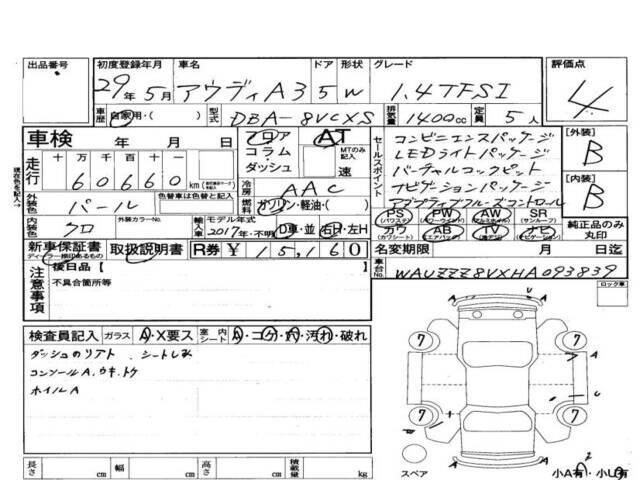 出品番号 初度登録年月 車名 ドア 形状 グレード 評価点
29年5月 アウディA3 5 W 1.4TFSI 4
車歴 自家用・( ) 型式 DBA-8VCXS 排気量 1400cc 定員 5人
車検 年 月 日
フロア コラム・ダッシュ AT MTのみ記入 速
セールスポイント
コンビニエンスパッケージ
LEDライトパッケージ
バーチャルコックピット
ナビゲーションパッケージ
アダプティブクルーズコントロール
[外装] B
[内装] B
現在色を記入→
走行 十 万 千 百 十
60660 km
冷房 AAC
外装色 パール 色替車は色替と記入 燃料 ガソリン・軽油・( )
内装色 クロ 外装カラーNo. 輸入車 モデル年式 2017年・不明 D車・並 右H・左H
PS (パワステ) PW (パワーウインド) AW SR (サンルーフ)
カワ (カワシート) AB (エアバック) TV ナビ (ナビゲーション)
純正品のみ丸印
新車保証書 取扱説明書 R券 ¥15,160
ディーラー捺印あるもの
名変期限 月 日迄
注意事項 後日品 [ ]
不具合箇所等
車台No. WAUZZZ8VXHA093839
ロック車
検査員記入 ガラス A・X要ス 室内シート A・コゲ・穴・汚れ・破れ
ダッシュのリアト、シートしみ
コンソールA、ウキ、トケ
ホイルA
7 7
7 7
A
A
A
U
U
スペア 小A有 2・小U有
長さ cm 幅 cm 高さ cm 積載量 kg